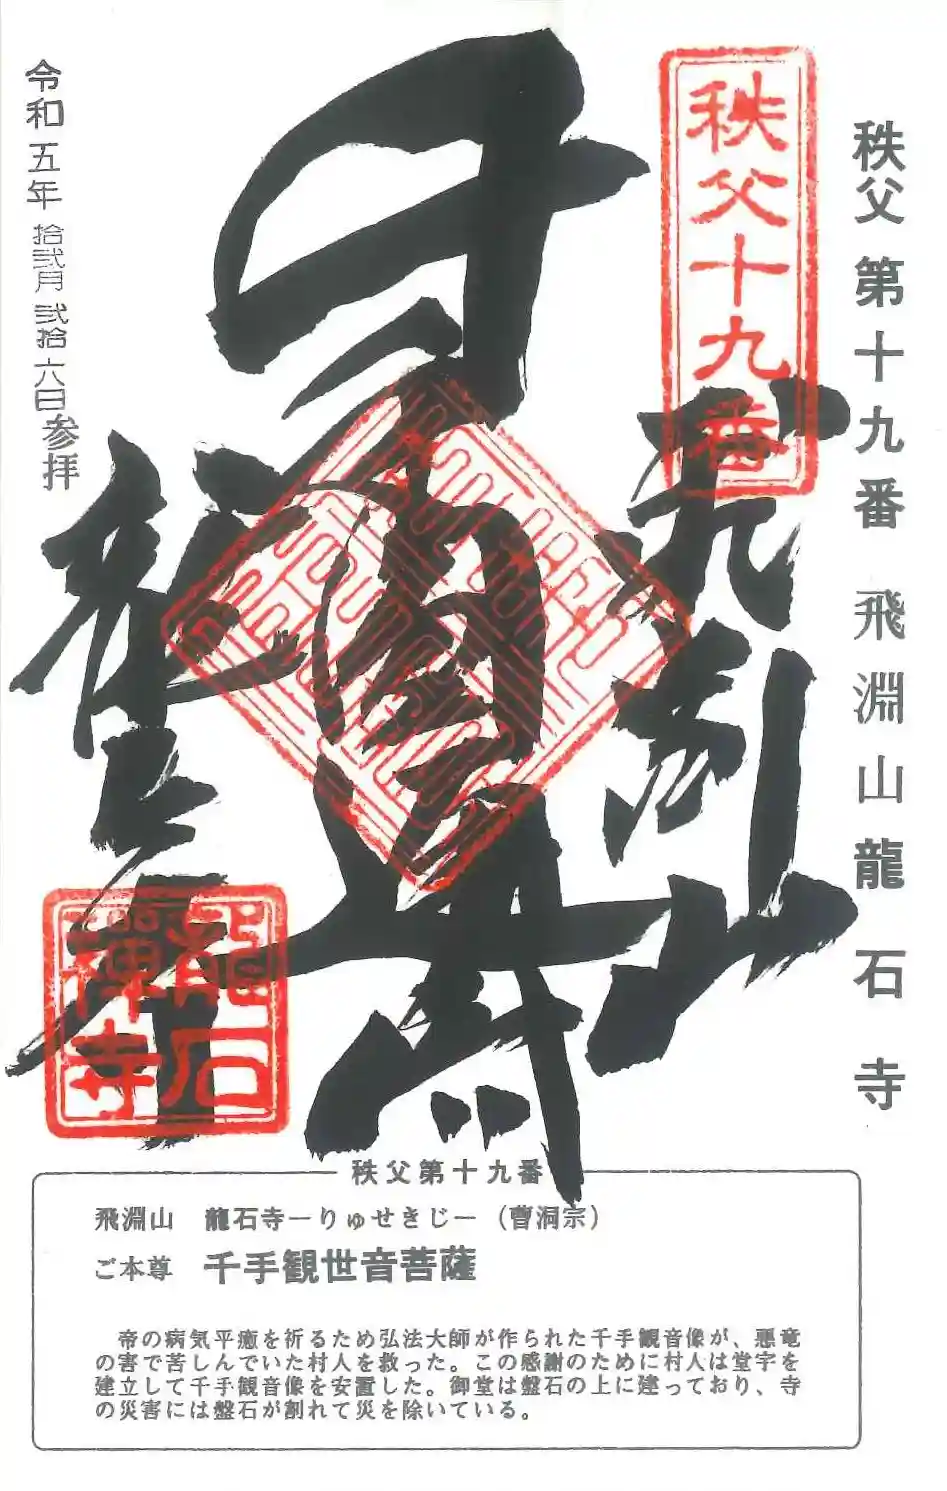 秩父第十九番 飛淵山龍石寺
秩父十九番
飛渕山
龍石寺
龍石
禅寺
令和五年拾弐月弐拾六日参拝
秩父第十九番
飛淵山 龍石寺―りゅせきじ―（曹洞宗）
ご本尊 千手観世音菩薩
帝の病気平癒を祈るため弘法大師が作られた千手観音像が、悪竜
の害で苦しんでいた村人を救った。この感謝のために村人は堂宇を
建立して千手観音像を安置した。御堂は盤石の上に建っており、寺
の災害には盤石が割れて災を除いている。